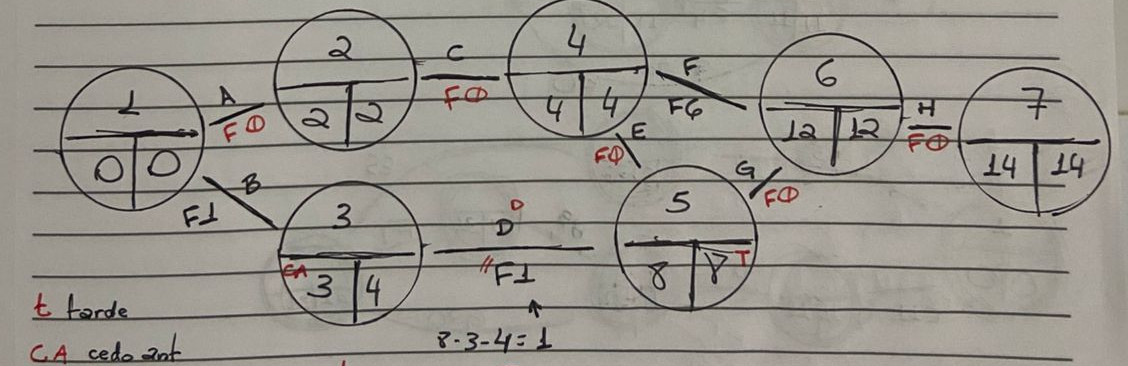 1
0 0
A
FØ
2
2 2
C
FØ
4
4 4
F
F6
6
12 12
H
FØ
7
14 14
B
F1
3
CA 3 4
D
D
"F1
E
FØ
5
8 8 T
G
FØ
8-3-4=1
t tarde
CA cedo ant